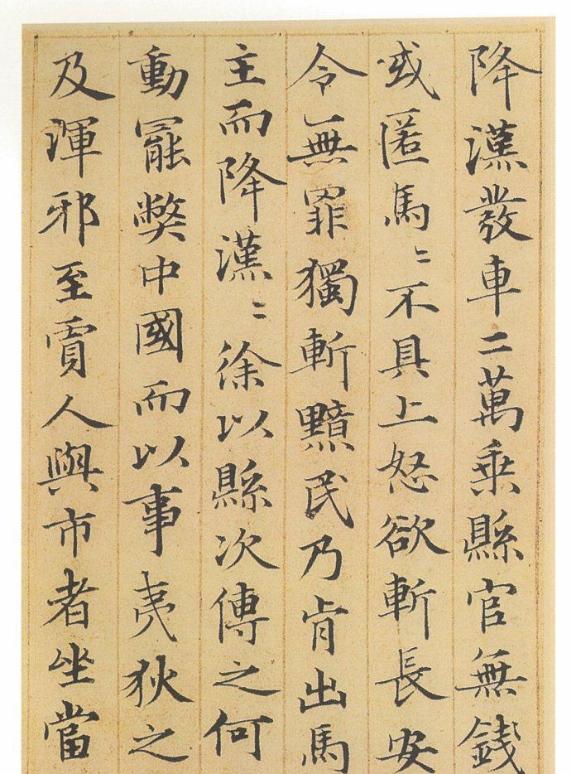 降漢發車二萬乘縣官無錢
或匿馬〻不具上怒欲斬長安
令無罪獨斬黯民乃肯出馬
主而降漢〻徐以縣次傳之何
動罷獘中國而以事夷狄之
及渾邪至賈人與市者坐當